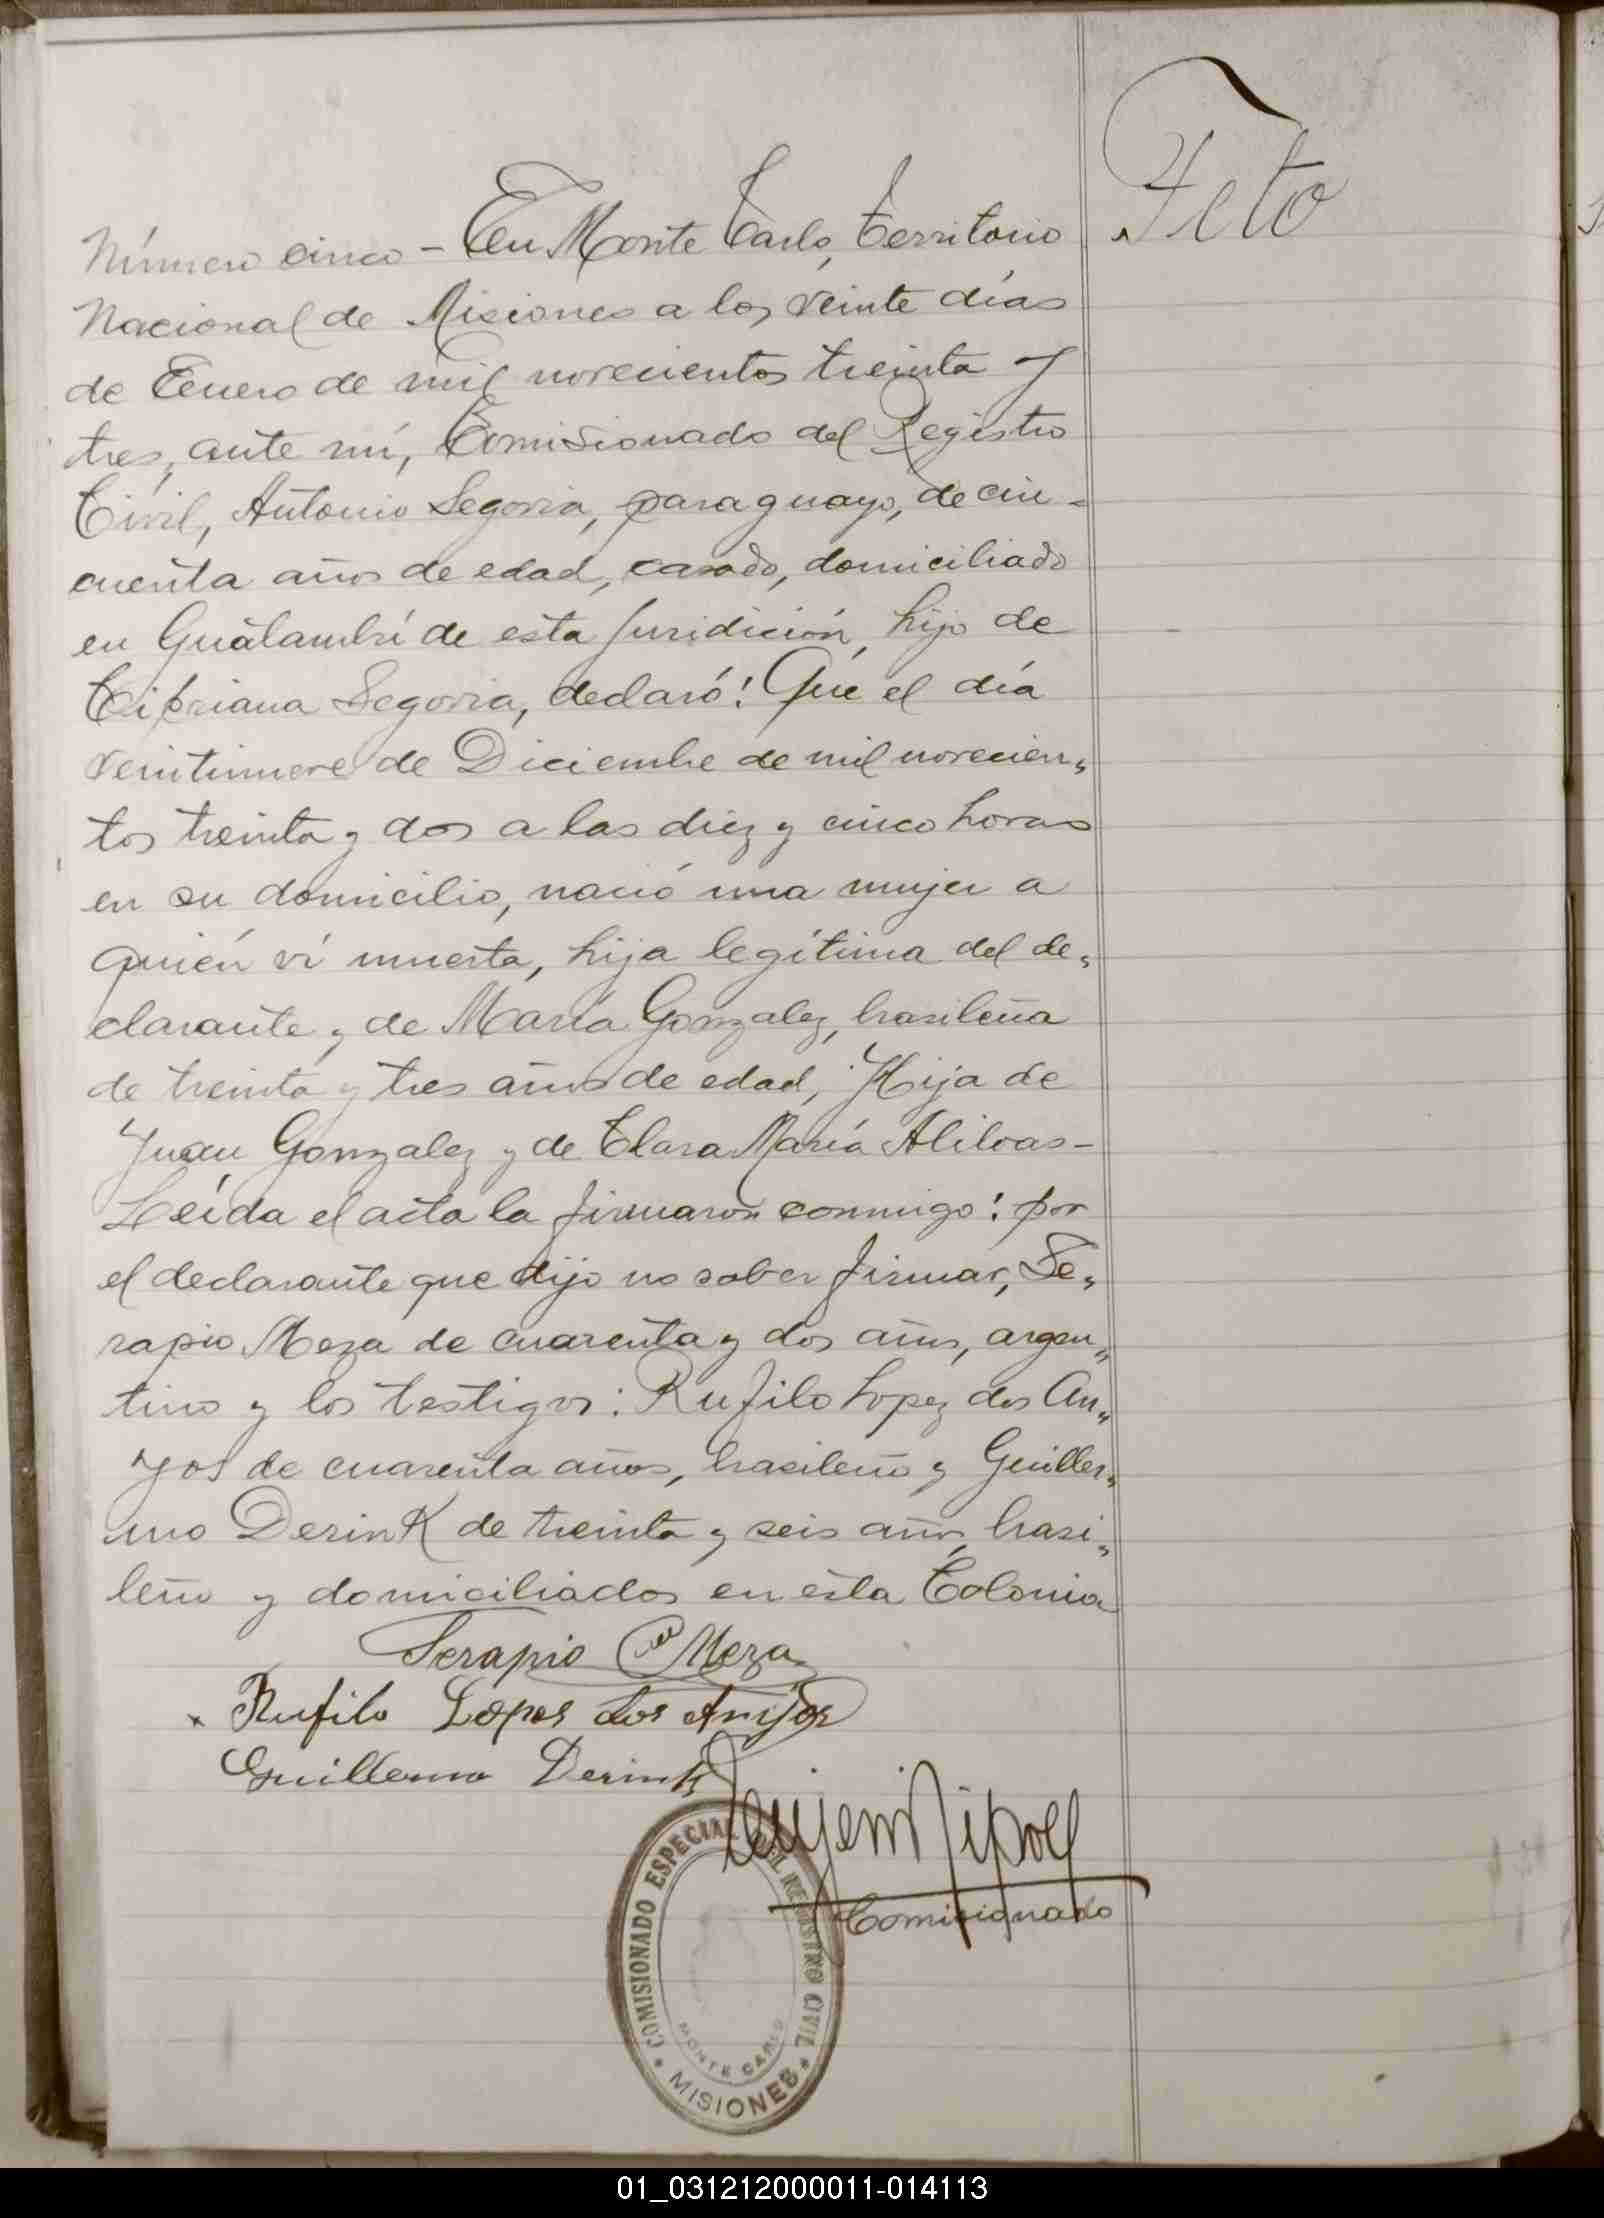 Feto
Número cinco - En Monte Carlo, Territorio
Nacional de Misiones a los veinte días
de Enero de mil novecientos treinta y
tres, ante mí, Comisionado del Registro
Civil, Antonio Segovia, paraguayo, de cin-
cuenta años de edad, casado, domiciliado
en Guatambú de esta Juridición, hijo de
Cipriana Segovia, declaró: Que el día
veintinueve de Diciembre de mil novecien"
tos treinta y dos a las diez y cinco horas
en su domicilio, nació una mujer a
quién ví muerta, hija legítima del de"
clarante y de María Gonzalez, brasileña
de treinta y tres años de edad, Hija de
Juan Gonzalez y de Clara María
Leída el acta la firmaron conmigo: por
el declarante que dijo no saber firmar, Se"
rapio Meza de cuarenta y dos años, argen"
tino y los testigos: Rufilo Lopez dos An"
jos de cuarenta años, brasileño y Guiller"
mo Derink de treinta y seis años, brasi"
leño y domiciliados en esta Colonia
Serapio Meza
x Rufilo Lopes dos Anjos
Guillermo Derink
Comisionado
COMISIONADO ESPECIAL DEL REGISTRO CIVIL
MONTE CARLO
* MISIONES *
01_031212000011-014113